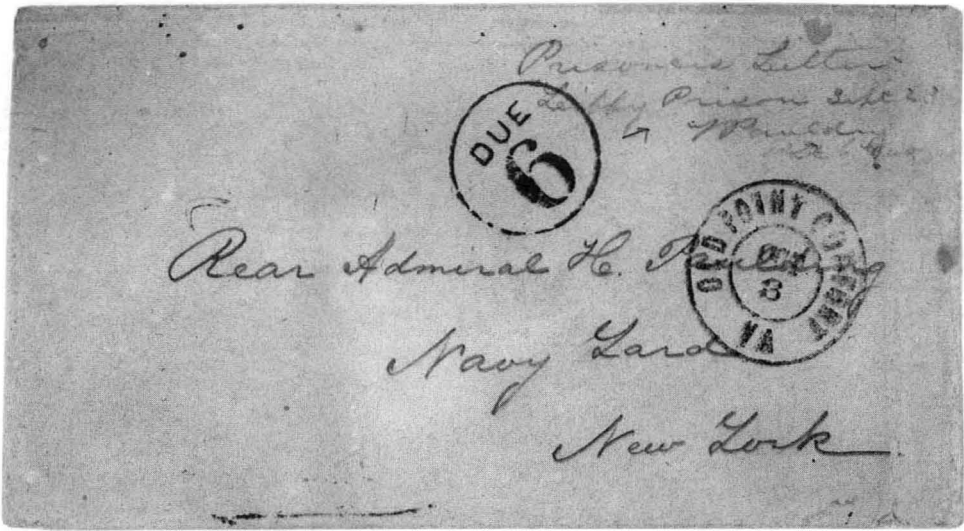 Prisoners Letter
Libby Prison Sept 2
DUE
6
OLD POINT COMFORT
OCT
8
VA
Rear Admiral H. Paulding
Navy Yard
New York